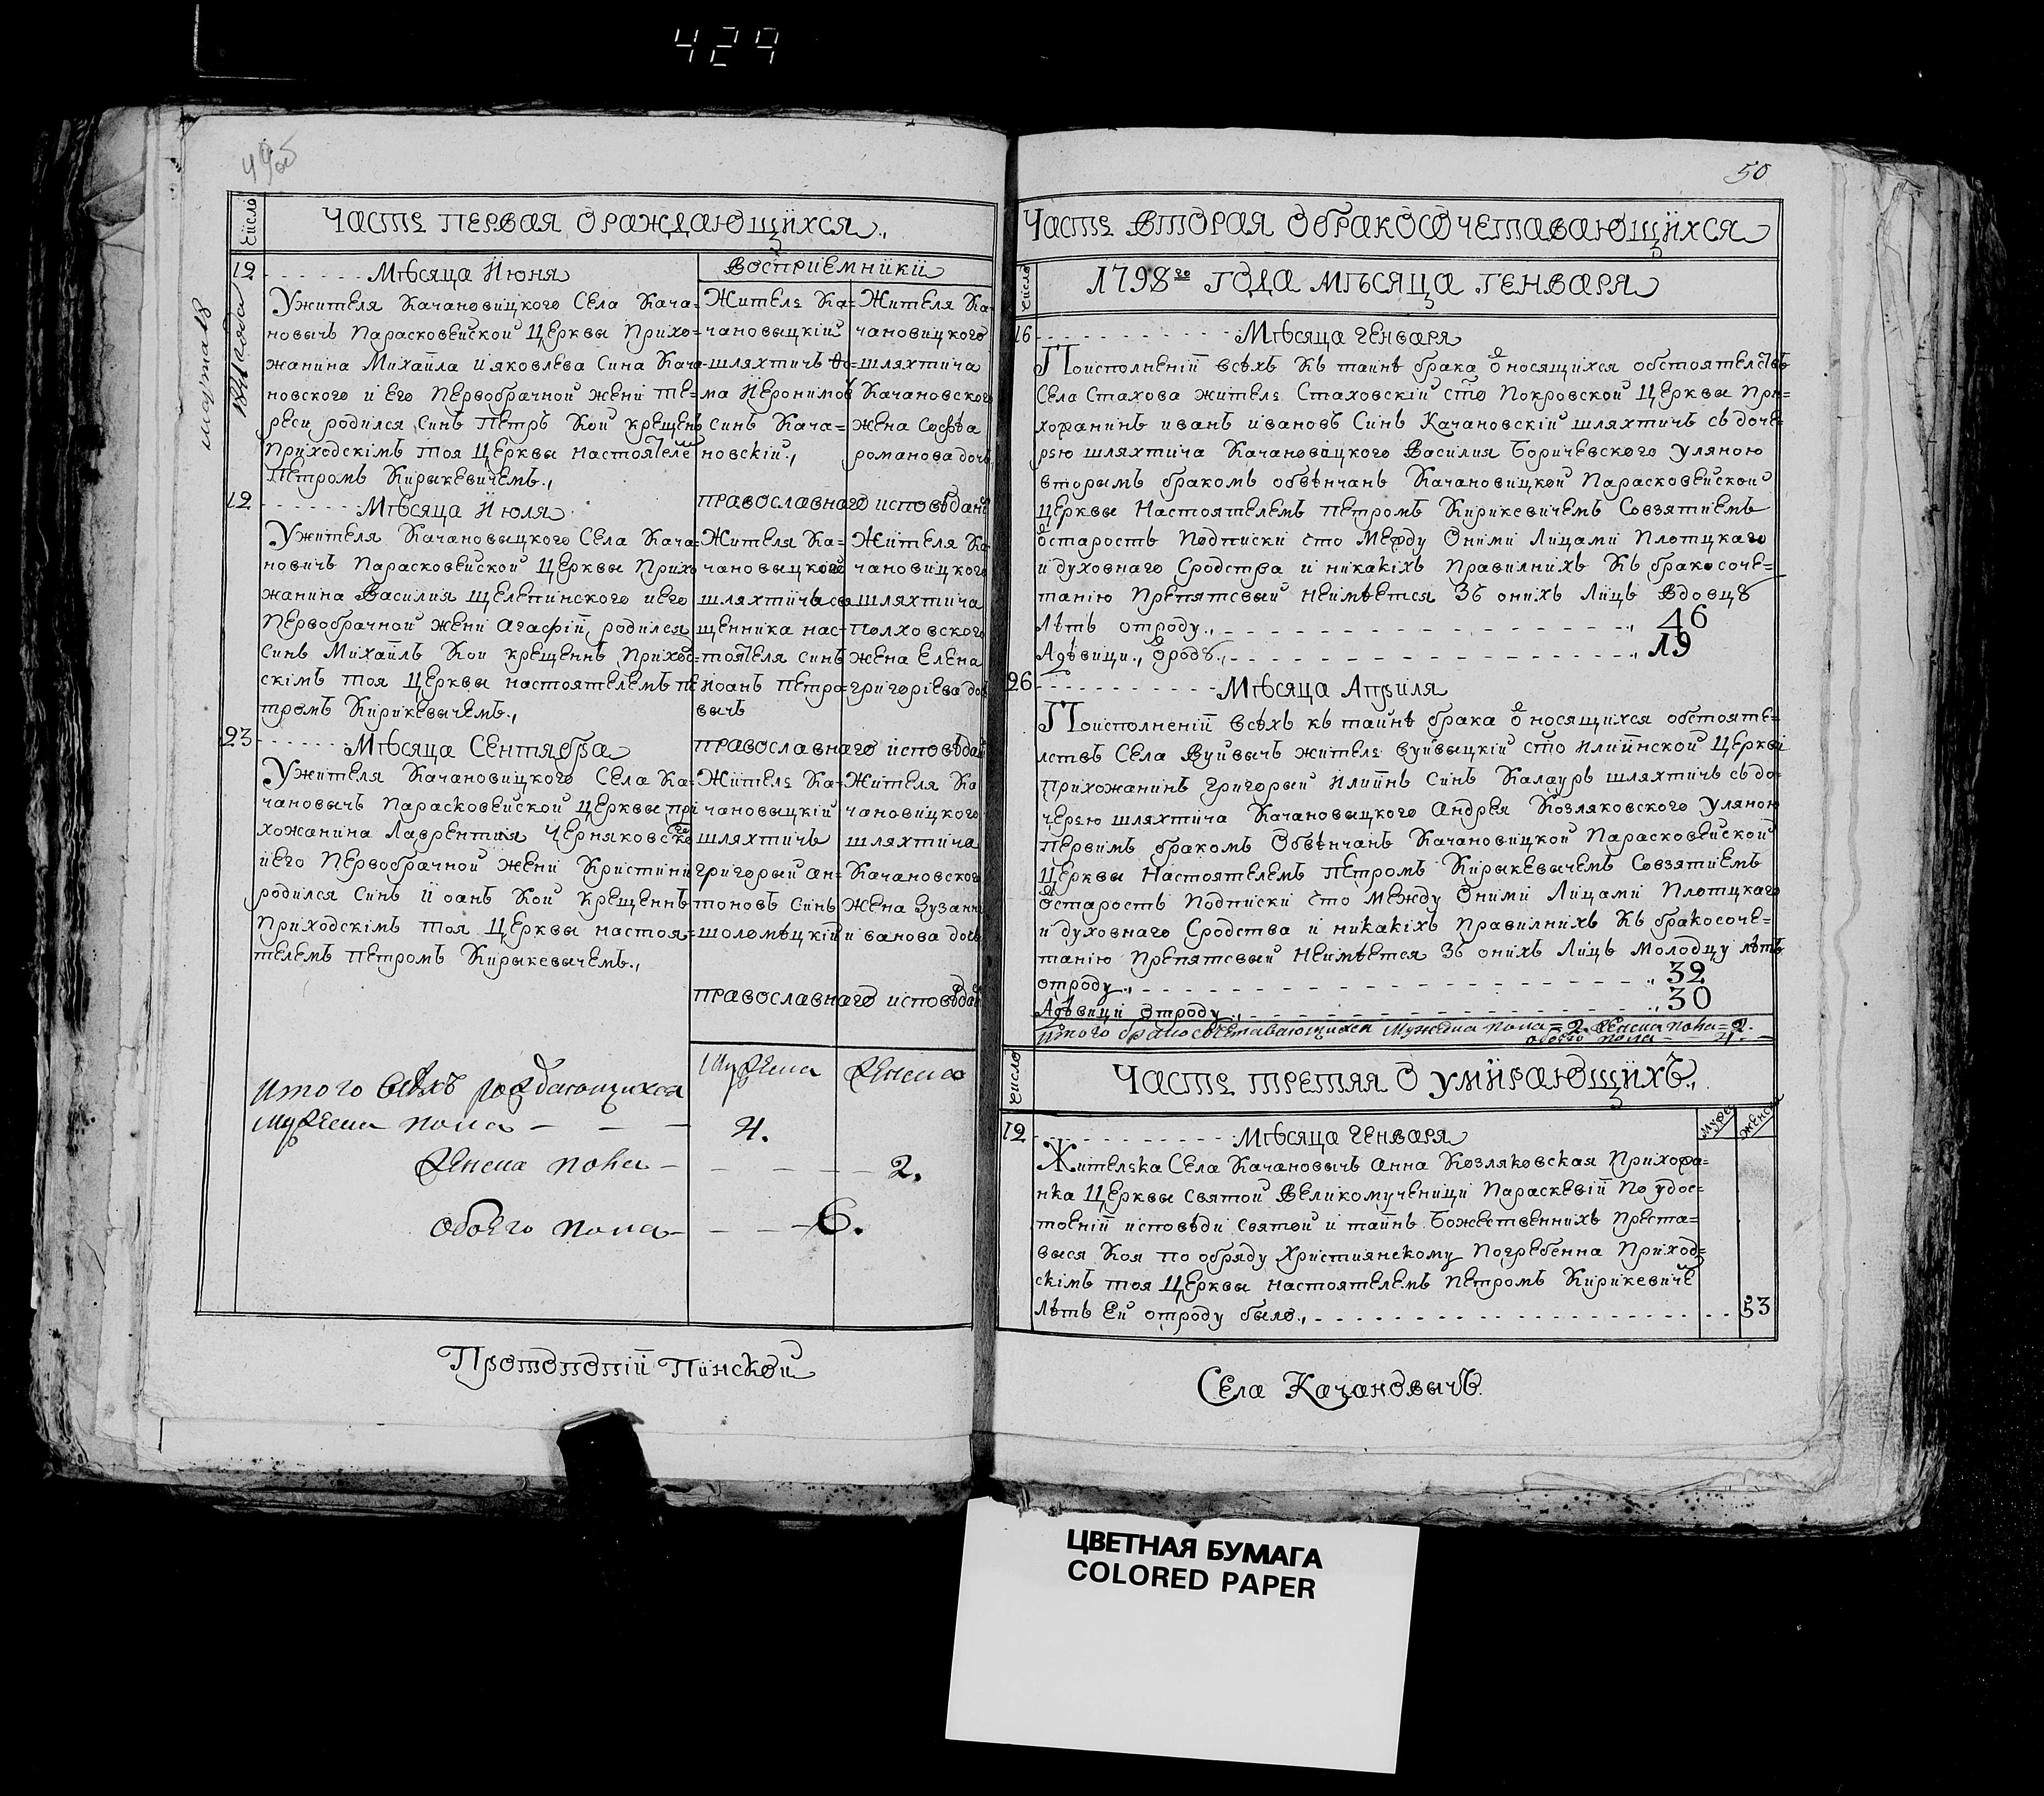 429
50
Число
ЧАСТЬ ПЕРВАЯ О РАЖДАЮЩИХСЯ.,
12 Мѣсяца Июня
Восприемники
Ужителя Качановицкого Села Кача=
новычъ Парасковейской Церквы Прихо=
жанина Михайла Ияковлева Сина Кача=
новского и Его Первобрачной жени Те=
реси родился Синъ Петръ Кой крещенъ
Приходскімъ тоя Церквы Настоятеле
Петромъ Кирыкевичемъ.,
Жителѣ Ка=
чановыцкій
шляхтичъ Ѳо=
ма Иеронимов
синъ Кача=
новскій.,
Жителя Ка
чановицкого
шляхтича
Качановского
жена Софѣа
романова дочь
12 Мѣсяца Июля
православнаго исповѣданія
Ужителя Качановыцкого Села Кача=
новичъ Парасковейской Церквы Прихо
жанина Василия Щелепинского иего
Первобрачной жени Агафій родился
синъ Михайлъ Кои крещеннъ Приход=
скімъ тоя Церквы настоятелемъ пе
тромъ Кирикевычемъ.,
Жителя Ка=
чановыцкого
шляхтичъ свя
щенника нас=
тоятеля синъ
Иоанъ Петро=
вычъ
Жителя Ка
чановицкого
шляхтича
Полховского
жена Елена
григоріева доч
23 Мѣсяца Сентября
православнаго исповѣдан
Ужителя Качановицкого Села Ка=
чановычъ Парасковейской Церквы при
хожанина Лаврентия Черняковско
иего Первобрачной жени Кристини
родился Синъ Иоанъ Кой Крещеннъ
Приходскімъ тоя Церквы настоя=
телемъ Петромъ Кирыкевычемъ.,
Жителѣ Ка=
чановыцкій
шляхтичъ
григорый ан=
тоновъ Синъ
шоломѣцкій
Жителя Ка
чановицкого
шляхтича
Качановского
жена Зузанна
иванова дочь
православнаго исповѣдан
Итого всѣхъ рождающихся
Мужеска Женска
Мужеска пола — — — 4.
Женска пола — — — — 2.
обоего пола — — — 6.
Протопопій Пинской
ЧАСТЬ ВТОРАЯ О БРАКОСОЧЕТАВАЮЩИХСЯ
Число
1798го ГОДА МѢСЯЦА ГЕНВАРЯ
16 Мѣсяца Генваря
Поисполненій всѣхъ Къ тайнѣ брака Относящихся обстоятелствъ
Села Стахова жителѣ Стаховскій сто Покровской Церквы При=
хожанинъ иванъ ивановъ Синъ Качановскій шляхтичъ съ доче=
рѣю шляхтича Качановицкого Василия Боричевского Уляною
вторымъ бракомъ обвѣнчанъ Качановицкой Парасковейской
Церквы Настоятелемъ Петромъ Кирикевичемъ Совзятиемъ
Отстарость Подписки Что Между Оними Лицами Плотцкаго
и духовнаго Сродства и никакіхъ Правилнихъ Къ бракосоче=
танію Препятсвый Неимѣется Зъ онихъ Лицъ Вдовцу
Лѣтъ отроду., 46
Адѣвици., Ѿроду., 19
26 Мѣсяца Априля
Поисполненій всѣхъ къ тайнѣ брака Относящихся обстояте=
лствъ Села Вуйвычъ жителѣ вуйвыцкій сто Илиинской Церкви
Прихожанинъ Григорый Илиинъ Синъ Калауръ шляхтичъ съ до=
черѣю шляхтича Качановыцкого Андрея Козляковского Уляною
Первимъ бракомъ Обвѣнчанъ Качановицкой Парасковейской
Церквы Настоятелемъ Петромъ Кирыкевычемъ Совзятиемъ
Отстарость Подписки Что Между Оними Лицами Плотцкаго
и духовнаго Сродства и никакіхъ Правилнихъ Къ бракосоче=
танію Препятсвый Неимѣется Зъ онихъ Лицъ Молодцу лѣтъ
отроду., 32
Адѣвици отроду., 30
Итого бракосочетавающихся Мужеска пола = 2. Женска пола = 2.
обоего пола — 4. —
Число
ЧАСТЬ ТРЕТЯЯ О УМИРАЮЩИХЪ.,
12 Мѣсяца Генваря
Мужес Женск
Жителѣка Села Качановычъ Анна Козляковская Прихожа=
нка Церквы Святой Великомученици Параскевій По удос=
тоеній исповѣди Святой и тайнъ Божественнихъ Преста=
выся Коя по обряду Християнскому Погребенна Приход=
скімъ тоя Церквы настоятелемъ Петромъ Кирикевиче
Лѣтъ Ей отроду было., 53
Села Качановычъ
ЦВЕТНАЯ БУМАГА
COLORED PAPER